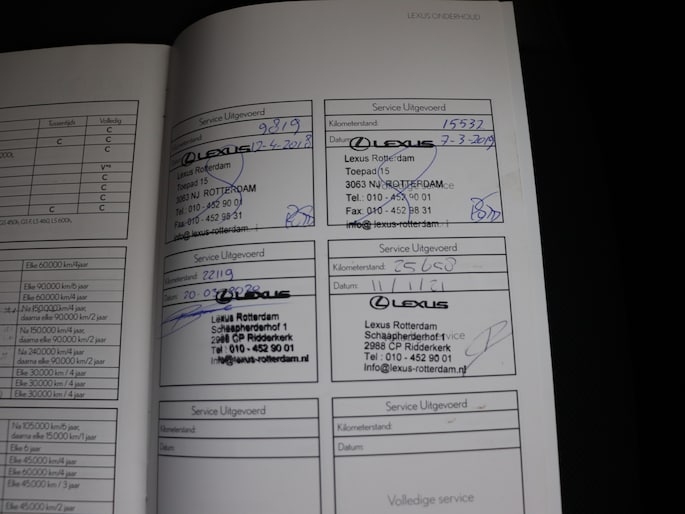 LEXUS ONDERHOUD
Tussentijds Volledig
C
C C
C
V*4
C
C
C
C
Elke 60.000 km/4 jaar
Elke 90.000 km/6 jaar
Elke 60.000 km/4 jaar
Na 150.000 km/4 jaar,
daarna elke 90.000 km/2 jaar
Na 150.000 km/4 jaar,
daarna elke 90.000 km/2 jaar
Na 240.000 km/4 jaar
daarna elke 90.000 km/2 jaar
Elke 30.000 km / 4 jaar
Elke 30.000 km / 4 jaar
Elke 30.000 km / 4 jaar
Na 105.000 km/6 jaar,
daarna elke 15.000 km/1 jaar
Elke 6 jaar
Elke 45.000 km/4 jaar
Elke 60.000 km/4 jaar
Elke 45.000 km / 3 jaar
Elke 45.000 km/2 jaar
Service Uitgevoerd
Kilometerstand: 9819
Datum: 12-4-2018
LEXUS
Lexus Rotterdam
Toepad 15
3063 NJ ROTTERDAM
Tel.: 010 - 452 90 01
Fax. 010 - 452 98 31
info@lexus-rotterdam.nl
Service Uitgevoerd
Kilometerstand: 15532
Datum: 7-3-2019
LEXUS
Lexus Rotterdam
Toepad 15
3063 NJ ROTTERDAM
service
Tel.: 010 - 452 90 01
Fax. 010 - 452 98 31
info@lexus-rotterdam.nl
Service Uitgevoerd
Kilometerstand: 22119
Datum:
LEXUS
Lexus Rotterdam
Schaapherderhof 1
2988 CP Ridderkerk
Tel : 010 - 452 90 01
Info@lexus-rotterdam.nl
Service Uitgevoerd
Kilometerstand:
Datum: 11/1/21
LEXUS
Lexus Rotterdam
Schaapherderhof 1
service
2988 CP Ridderkerk
Tel : 010 - 452 90 01
Info@lexus-rotterdam.nl
Service Uitgevoerd
Kilometerstand:
Datum:
Service Uitgevoerd
Kilometerstand:
Datum:
Volledige service